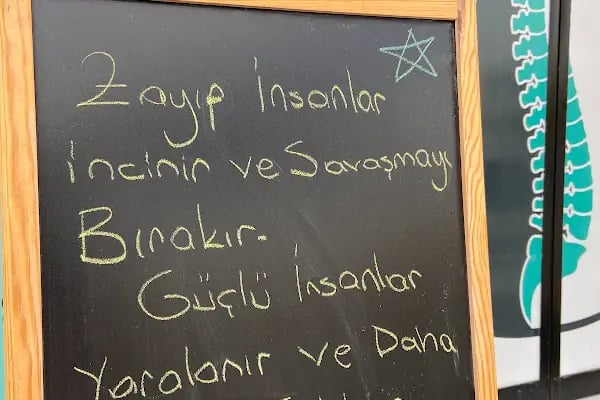 Zayıf İnsanlar
incinir ve Savaşmayı
Bırakır.
Güçlü İnsanlar
Yaralanır ve Daha